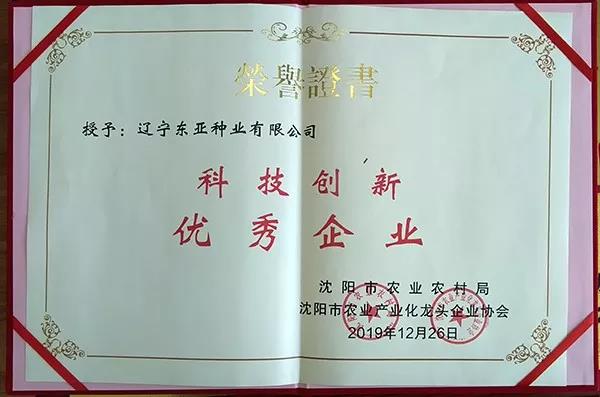 榮譽證書
授予：辽宁东亚种业有限公司
科技创新
优秀企业
沈阳市农业农村局
沈阳市农业产业化龙头企业协会
2019年12月26日